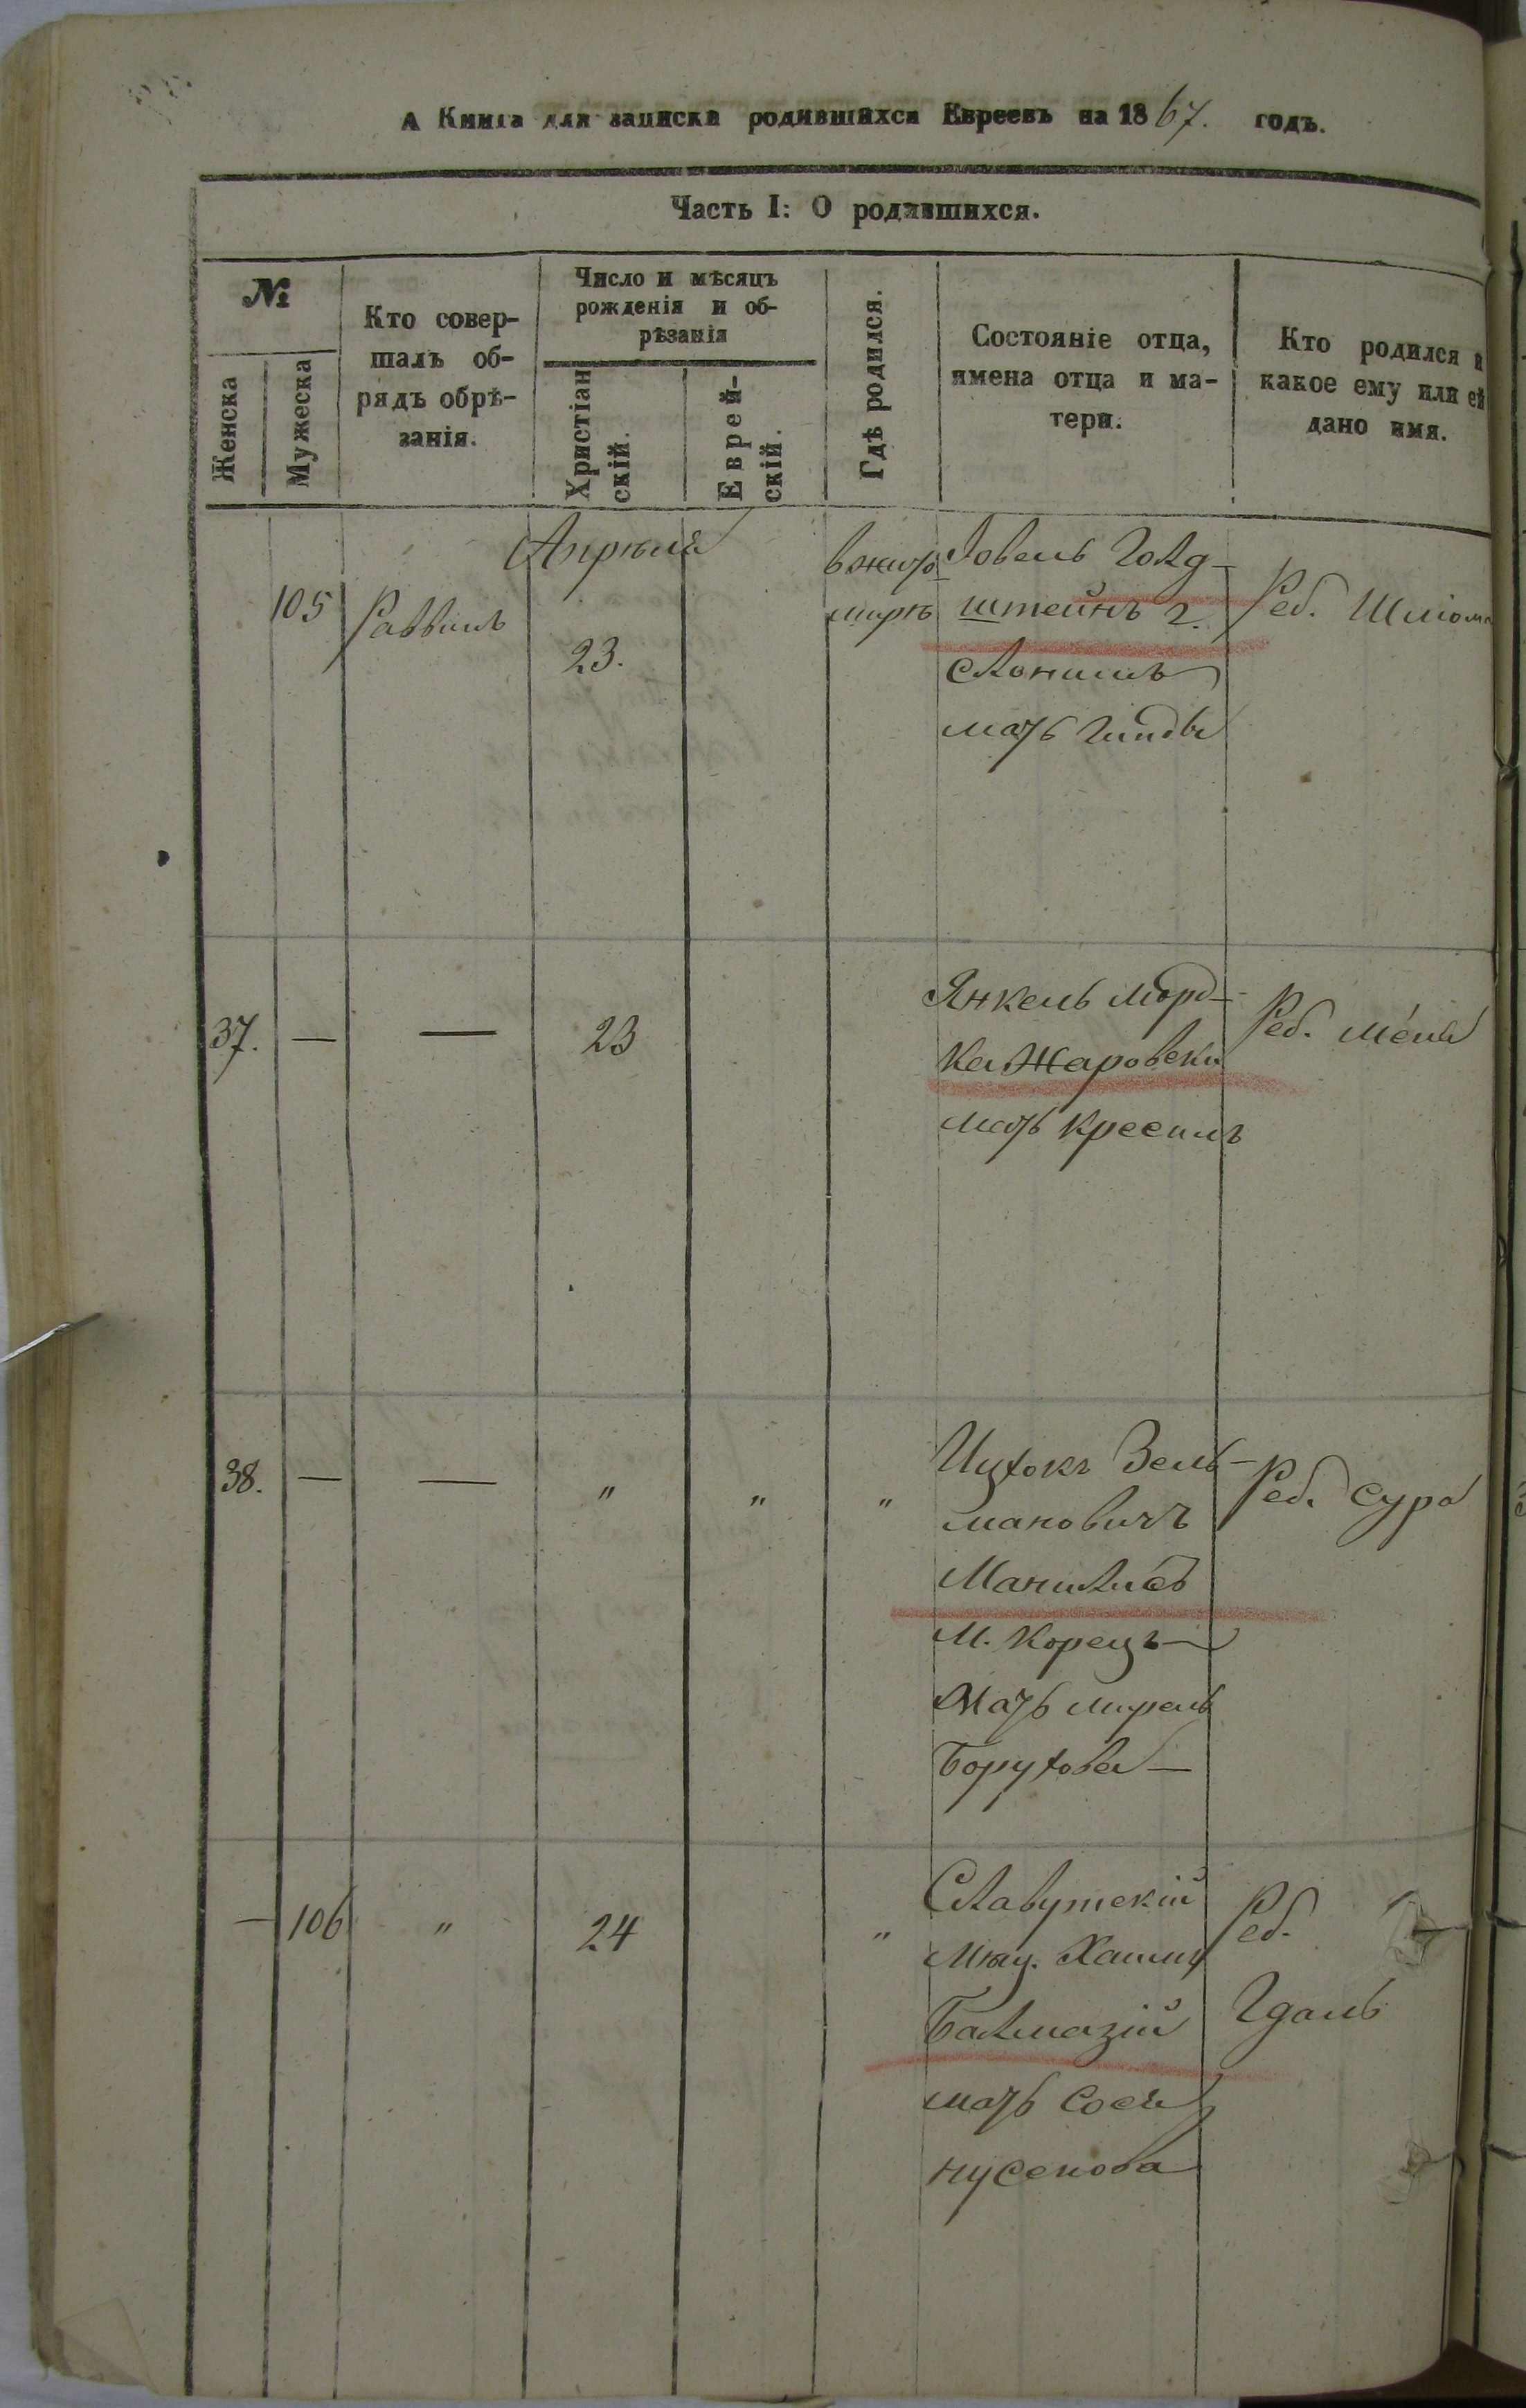 А Книга для записки родившихся Евреевъ на 1867. годъ.
Часть I: О родившихся.
№
Женска
Мужеска
Кто совер-
шалъ об-
рядъ обрѣ-
занія.
Число и мѣсяцъ
рожденія и об-
рѣзанія
Христіан
скій.
Еврей-
скій.
Гдѣ родился.
Состояніе отца,
имена отца и ма-
тери.
Кто родился и
какое ему или ей
дано имя.
Апрѣля
105
Раввинъ
23.
в жито
мирѣ
Іовель Голд-
штейнъ г.
Слонимъ
мать Гинды
Реб. Шліома
37.
—
—
23
Янкель Морд-
ка Жаровски
мать Кресилъ
Реб. Меня
38.
—
—
"
"
"
Ицхокъ Зель-
мановичъ
Манилисъ
М. Корецъ
Мать мирель
Борухова —
Реб. Сура
—
106
"
24
"
Славутскій
Мѣщ. Хаимъ
Балмазій
мать Сося
нусенова
Реб.
Гдаль